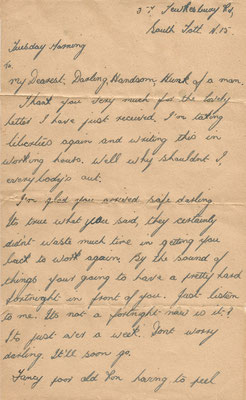 37, Tewkesbury Rd,
South Tott. N.15.
Tuesday Morning
To.
My Dearest, Darling, Handsom, Hunk of a man.
Thank you very much for the lovely
letter I have just received, I'm taking
liberties again and writing this in
working hours. Well why shouldn't I,
everybody's out.
I'm glad you arrived safe darling.
Its true what you said, they certainly
didn't waste much time in getting you
back to work again. By the sound of
things, your going to have a pretty hard
fortnight in front of you. Just listen
to me. Its not a fortnight now is it?
Its just over a week. Dont worry
darling. It'll soon go.
Fancy poor old Ron having to peel